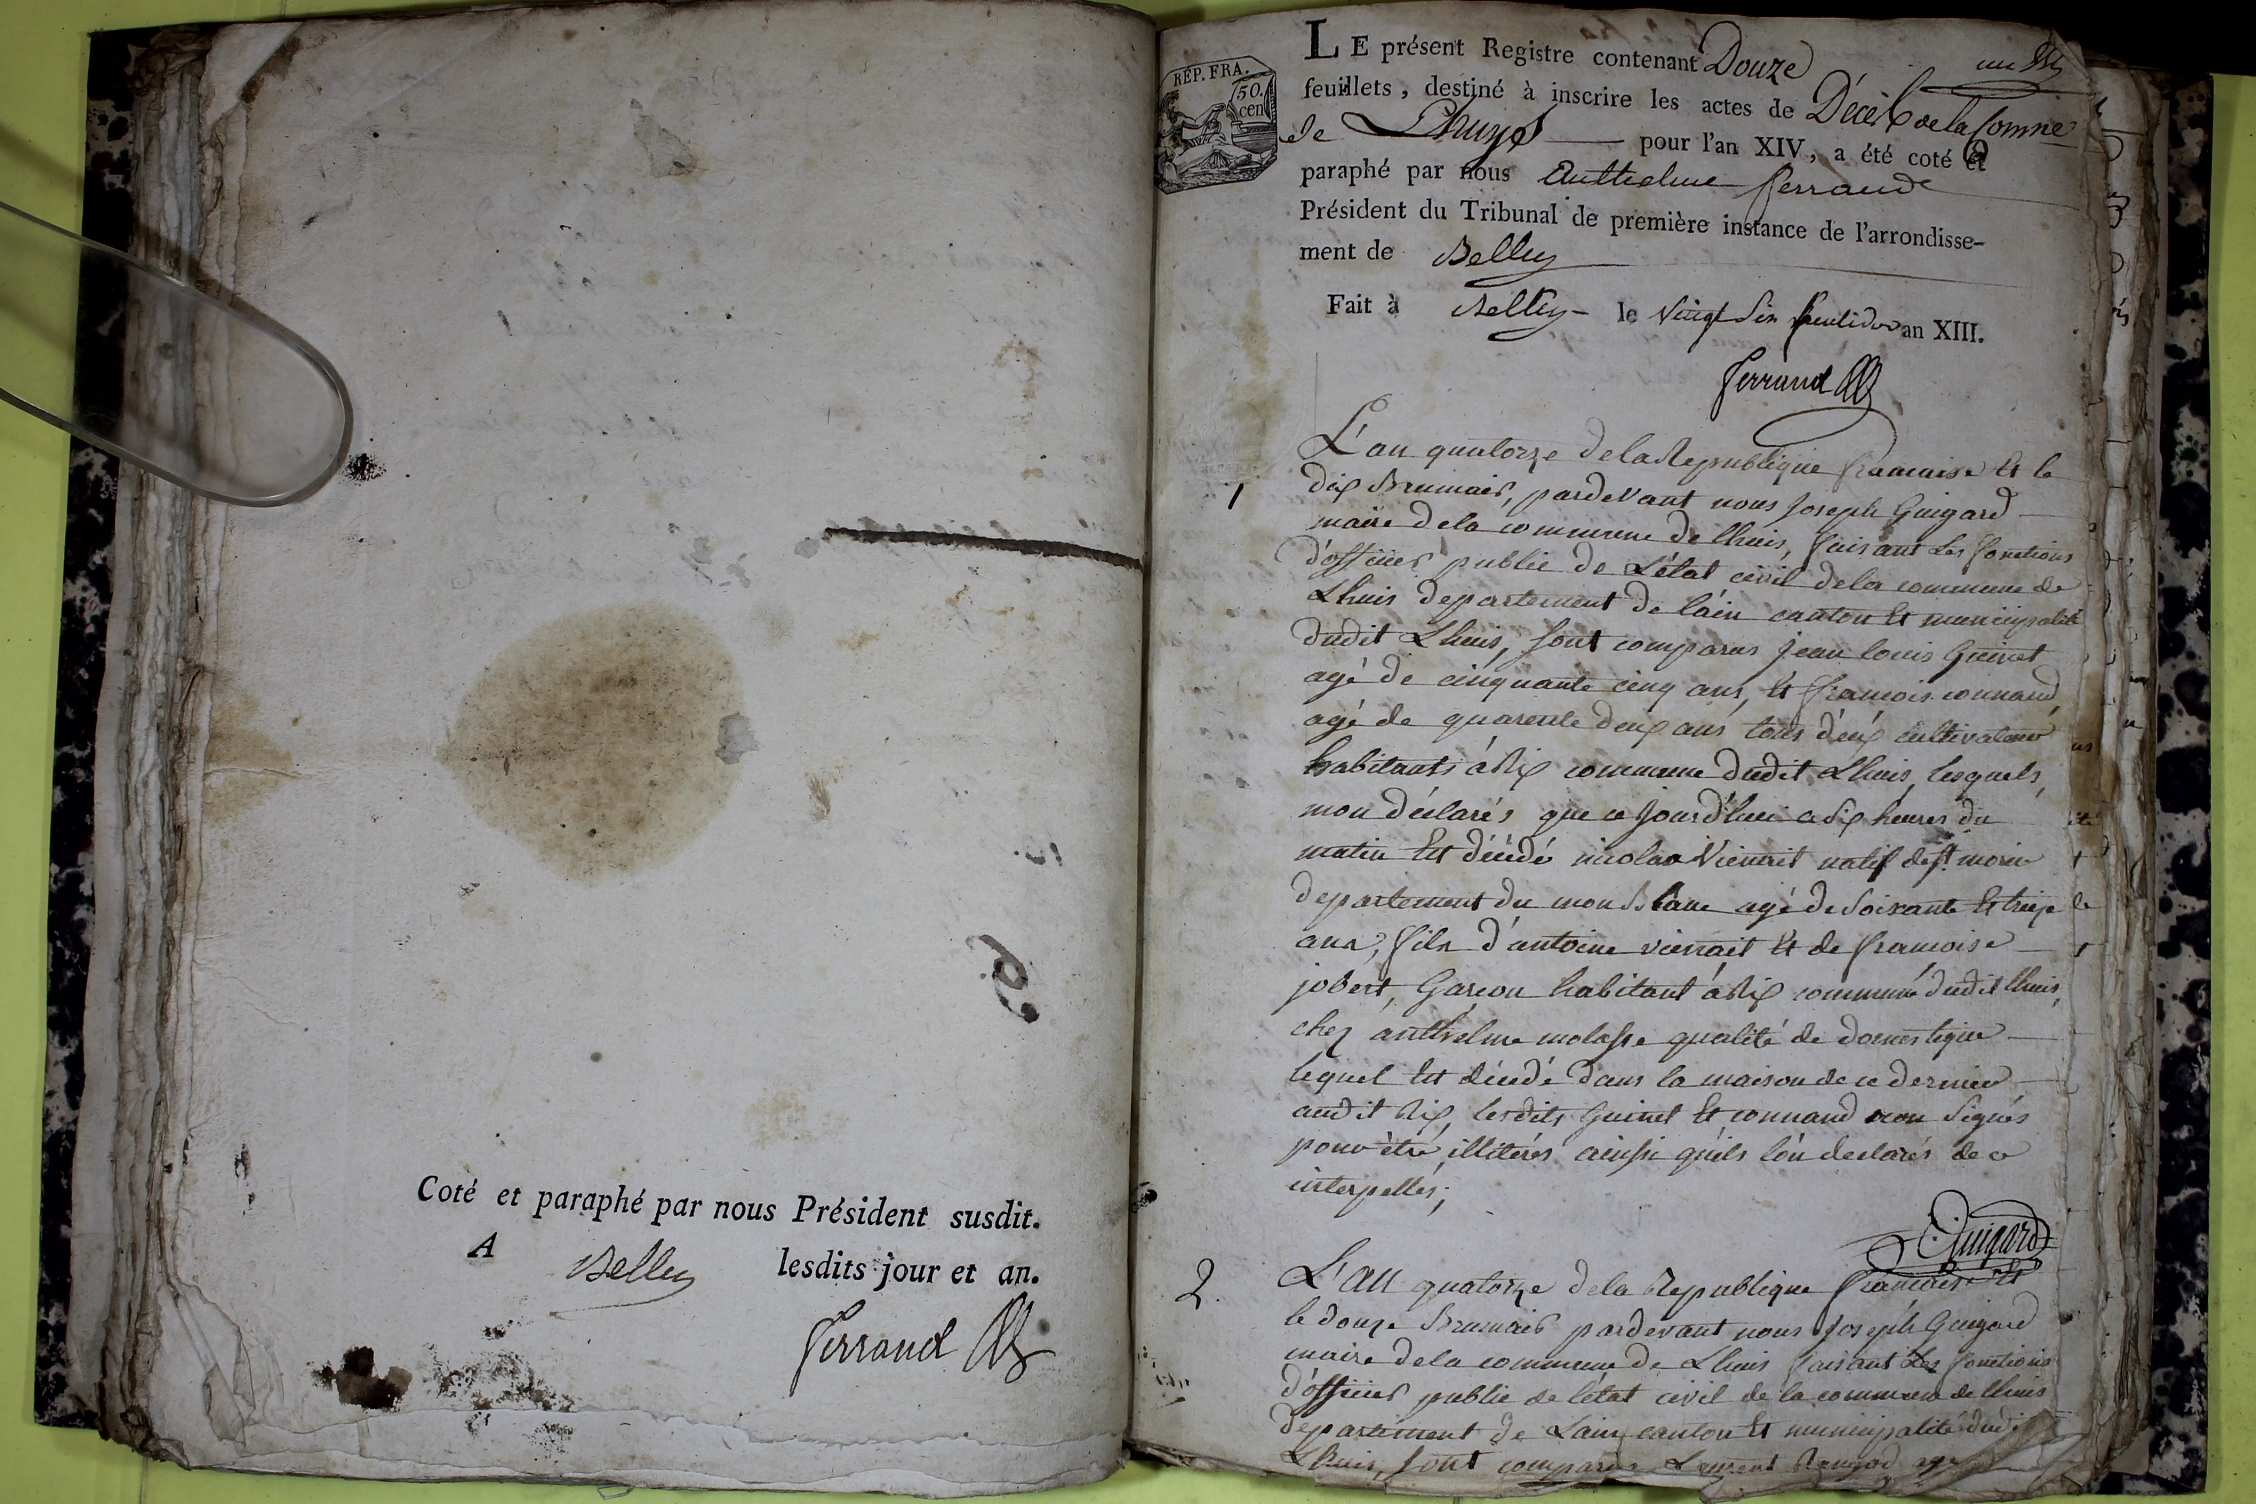 Coté et paraphé par nous Président susdit.
A Belley lesdits jour et an.
Ferrand
RÉP. FRA.
50.
cen
LE présent Registre contenant Douze
feuillets, destiné à inscrire les actes de Décès de la Comne
de Lhuys pour l'an XIV, a été coté et
paraphé par nous Anthelme ferrand
Président du Tribunal de première instance de l'arrondisse-
ment de Belley
Fait à Belley le vingt Six fructidor an XIII.
ferrand
1
L'an quatorze de la Republique francaise Et le
dix Brumair, pardevant nous Joseph Guigard
maire de la commune de lhuis, faisant Les fonctions
d'officier public de L'état civil de la commune de
Lhuis departement de l'ain canton Et municipalité
dudit Lhuis, sont comparus jean louis Guinet
agé de cinquante cinq ans, Et francois connand,
agé de quarente deux ans tous déux cultivateur
habitants á Rix commune dudit Lhuis, lesquels,
mon déclarés que ce jourd'hui a Six heures du
matin Est décédé nicolas natif de St.
departement du mon Blanc agé de Soixante Et treize
ans, fils d'antoine Et de francoise
jobert, Garcon habitant á Rix commune dudit lhuis,
chez anthelme molasse qualité de domestique
lequel Est décedé dans la maison de ce dernier
audit Rix, lesdits Guinet Et connand non Signés
pour être illitérés ainssi quéils lón declarés de ce
interpellés;
Guigard
2
L'an quatorze de la Republique francaise Et
le douze Brumair pardevant nous Joseph Guigard
maire de la commune de Lhuis faisant Les fonctions
d'officier public de l'état civil de la commune de lhuis
departement de Lain canton Et municipalité dudit
Lhuis, sont comparus Laurent agé